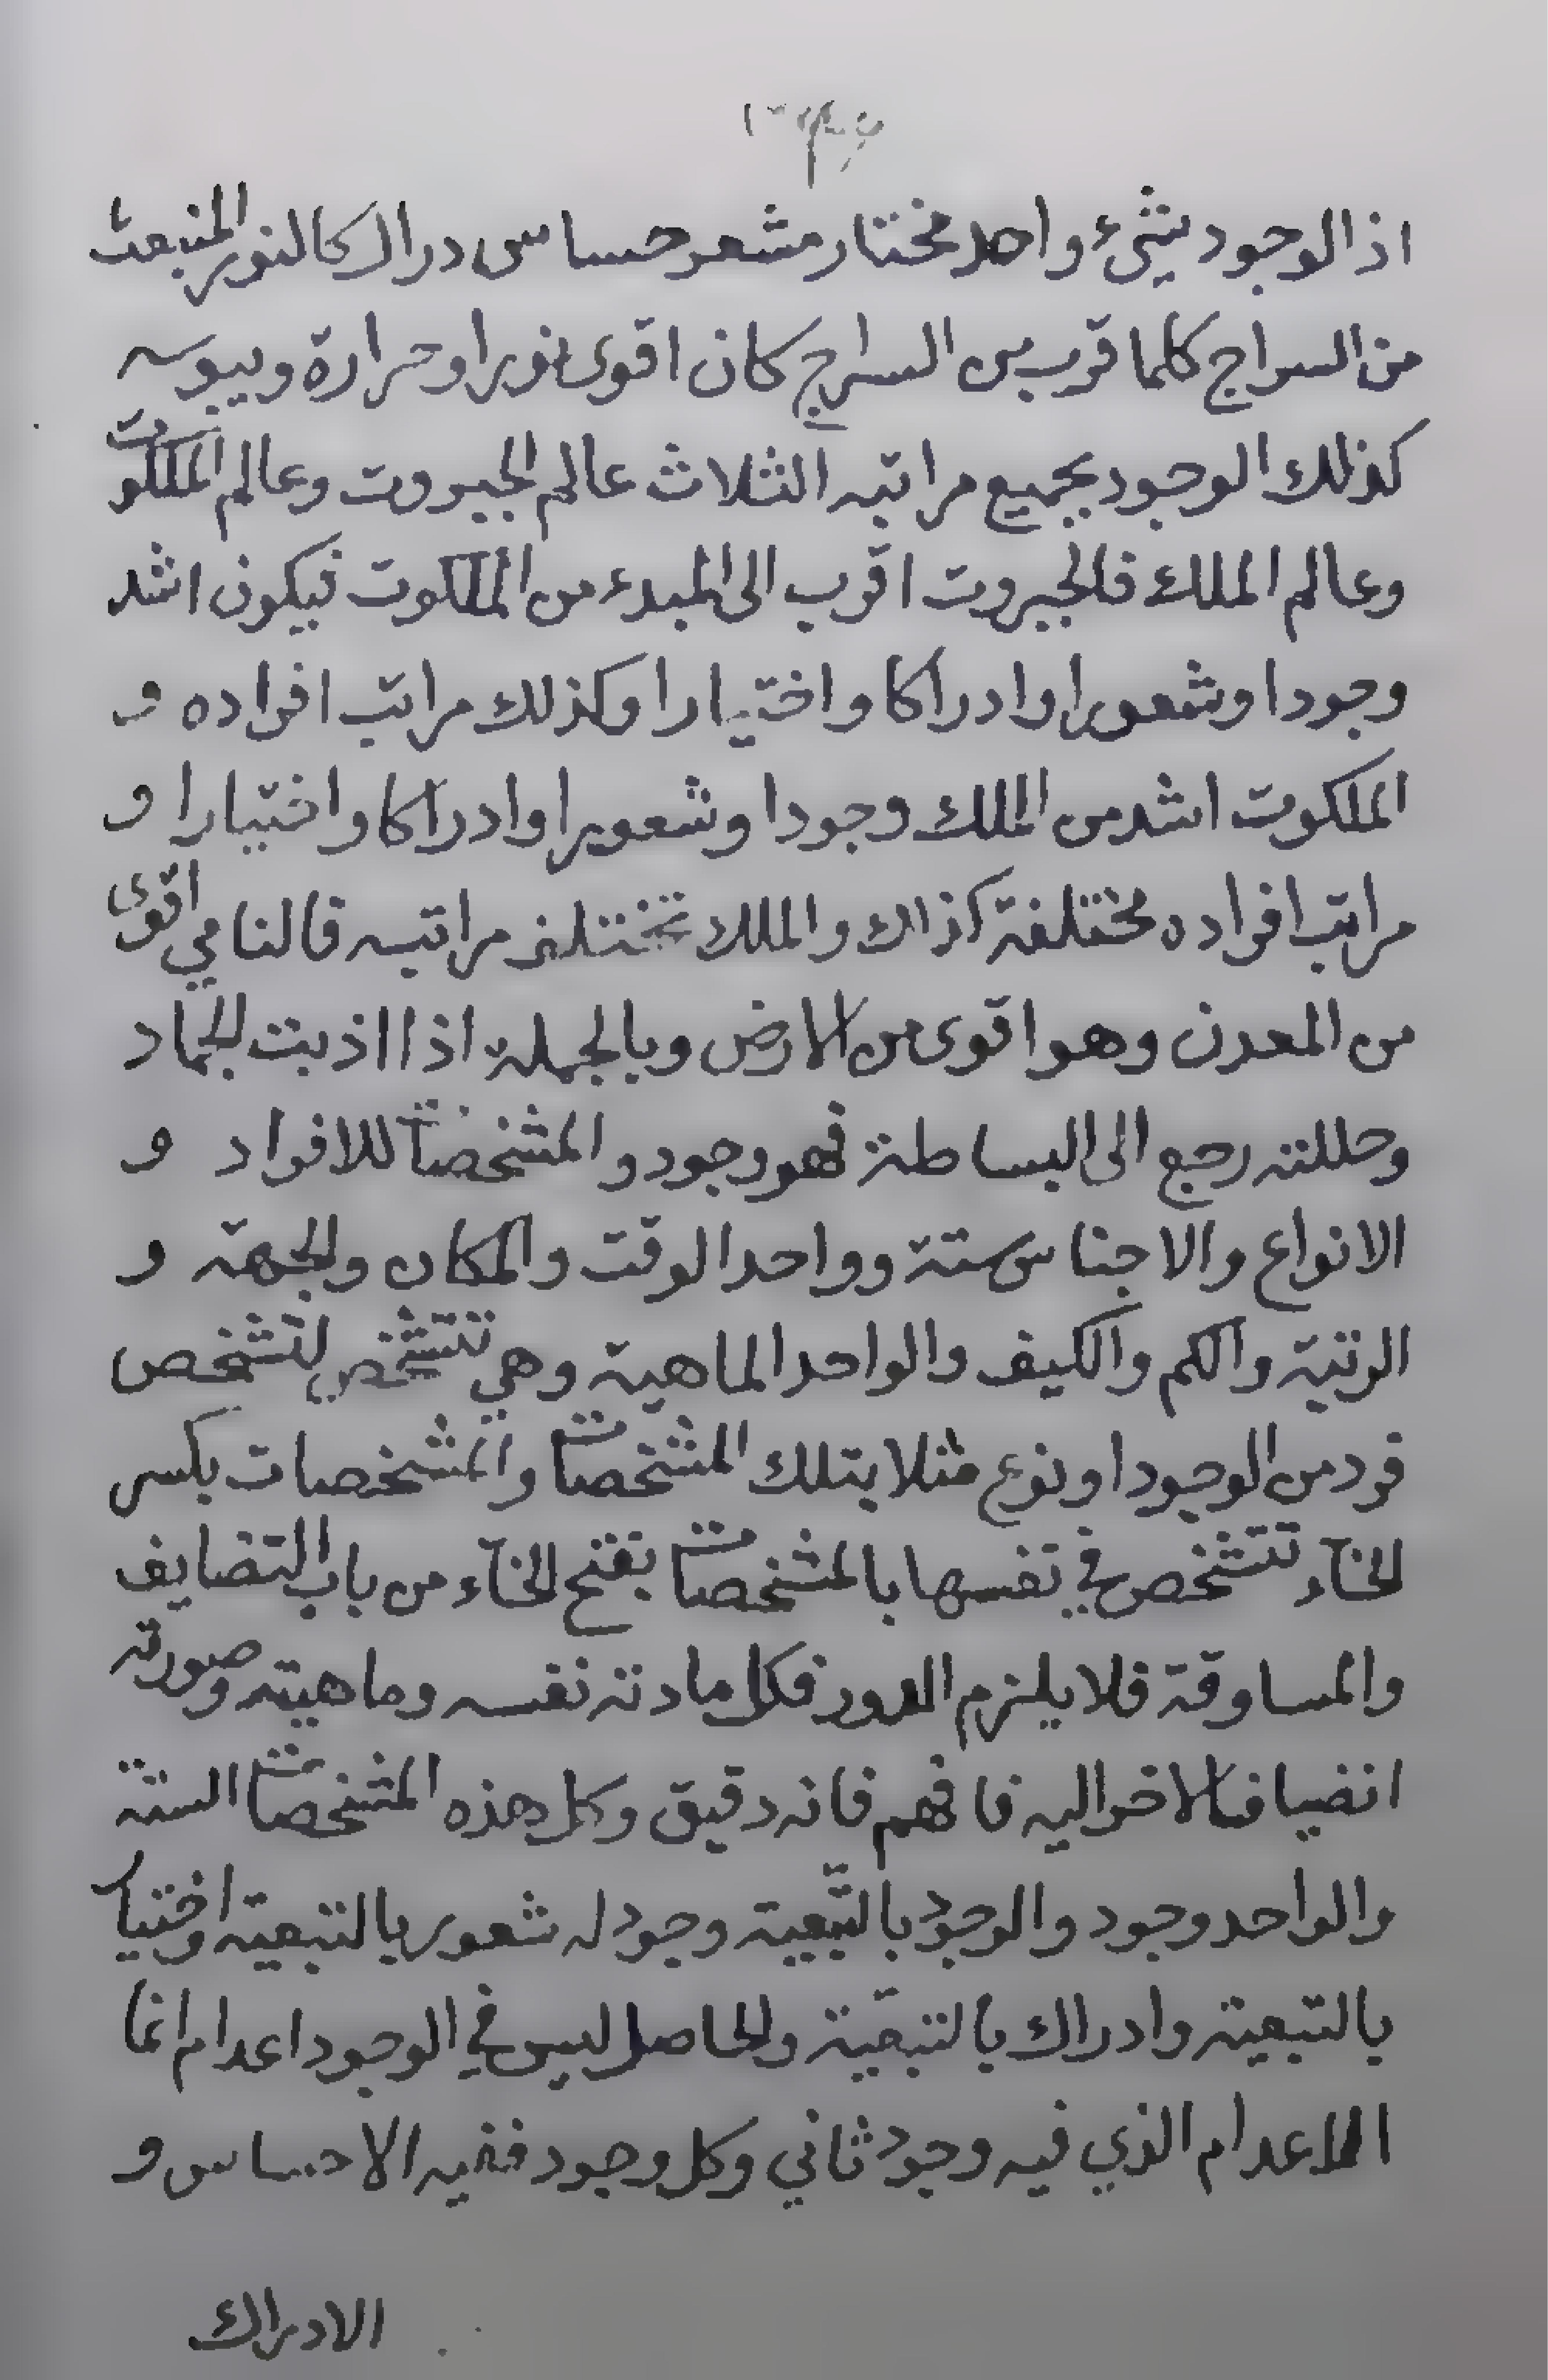 اذ الوجود شيء واحد مختار مشعر حساس دراك كالنور المنبعث
من السراج كلما قرب من السراج كان اقوى نورا وحرارة ويبوسه
كذلك الوجود بجميع مراتبه الثلاث عالم الجبروت وعالم الملكوت
وعالم الملك فالجبروت اقرب الى المبدء من الملكوت فيكون اشد
وجودا وشعورا وادراكا واختيارا وكذلك مراتب افراده و
الملكوت اشد من الملك وجودا وشعورا وادراكا واختيارا و
مراتب افراده مختلفة كذلك والملك تختلف مراتبه فالنامي اقوى
من المعدن وهو اقوى من الارض وبالجملة اذا اذبت الجماد
وحللته رجع الى البساطة فهو وجود والمشخصات للافراد و
الانواع والاجناس ستة وواحد الوقت والمكان والجهة و
الرتبة والكم والكيف والواحد الماهية وهي تتشخص لتشخص
فرد من الوجود او نوع مثلا بتلك المشخصات والمشخصات بكسر
الخآء تتشخص في نفسها بالمشخصات بفتح الخآء من باب التضايف
والمساوقة فلا يلزم الدور فكل مادته نفسه وماهيته وصورته
انضياف الاخر اليه فافهم فانه دقيق وكل هذه المشخصات الستة
والواحد وجود والوجود بالتبعية وجود له شعور بالتبعية واختيار
بالتبعية وادراك بالتبعية والحاصل ليس في الوجود اعدام انما
الاعدام الذي فيه وجود ثاني وكل وجود ففيه الاحساس و
الادراك